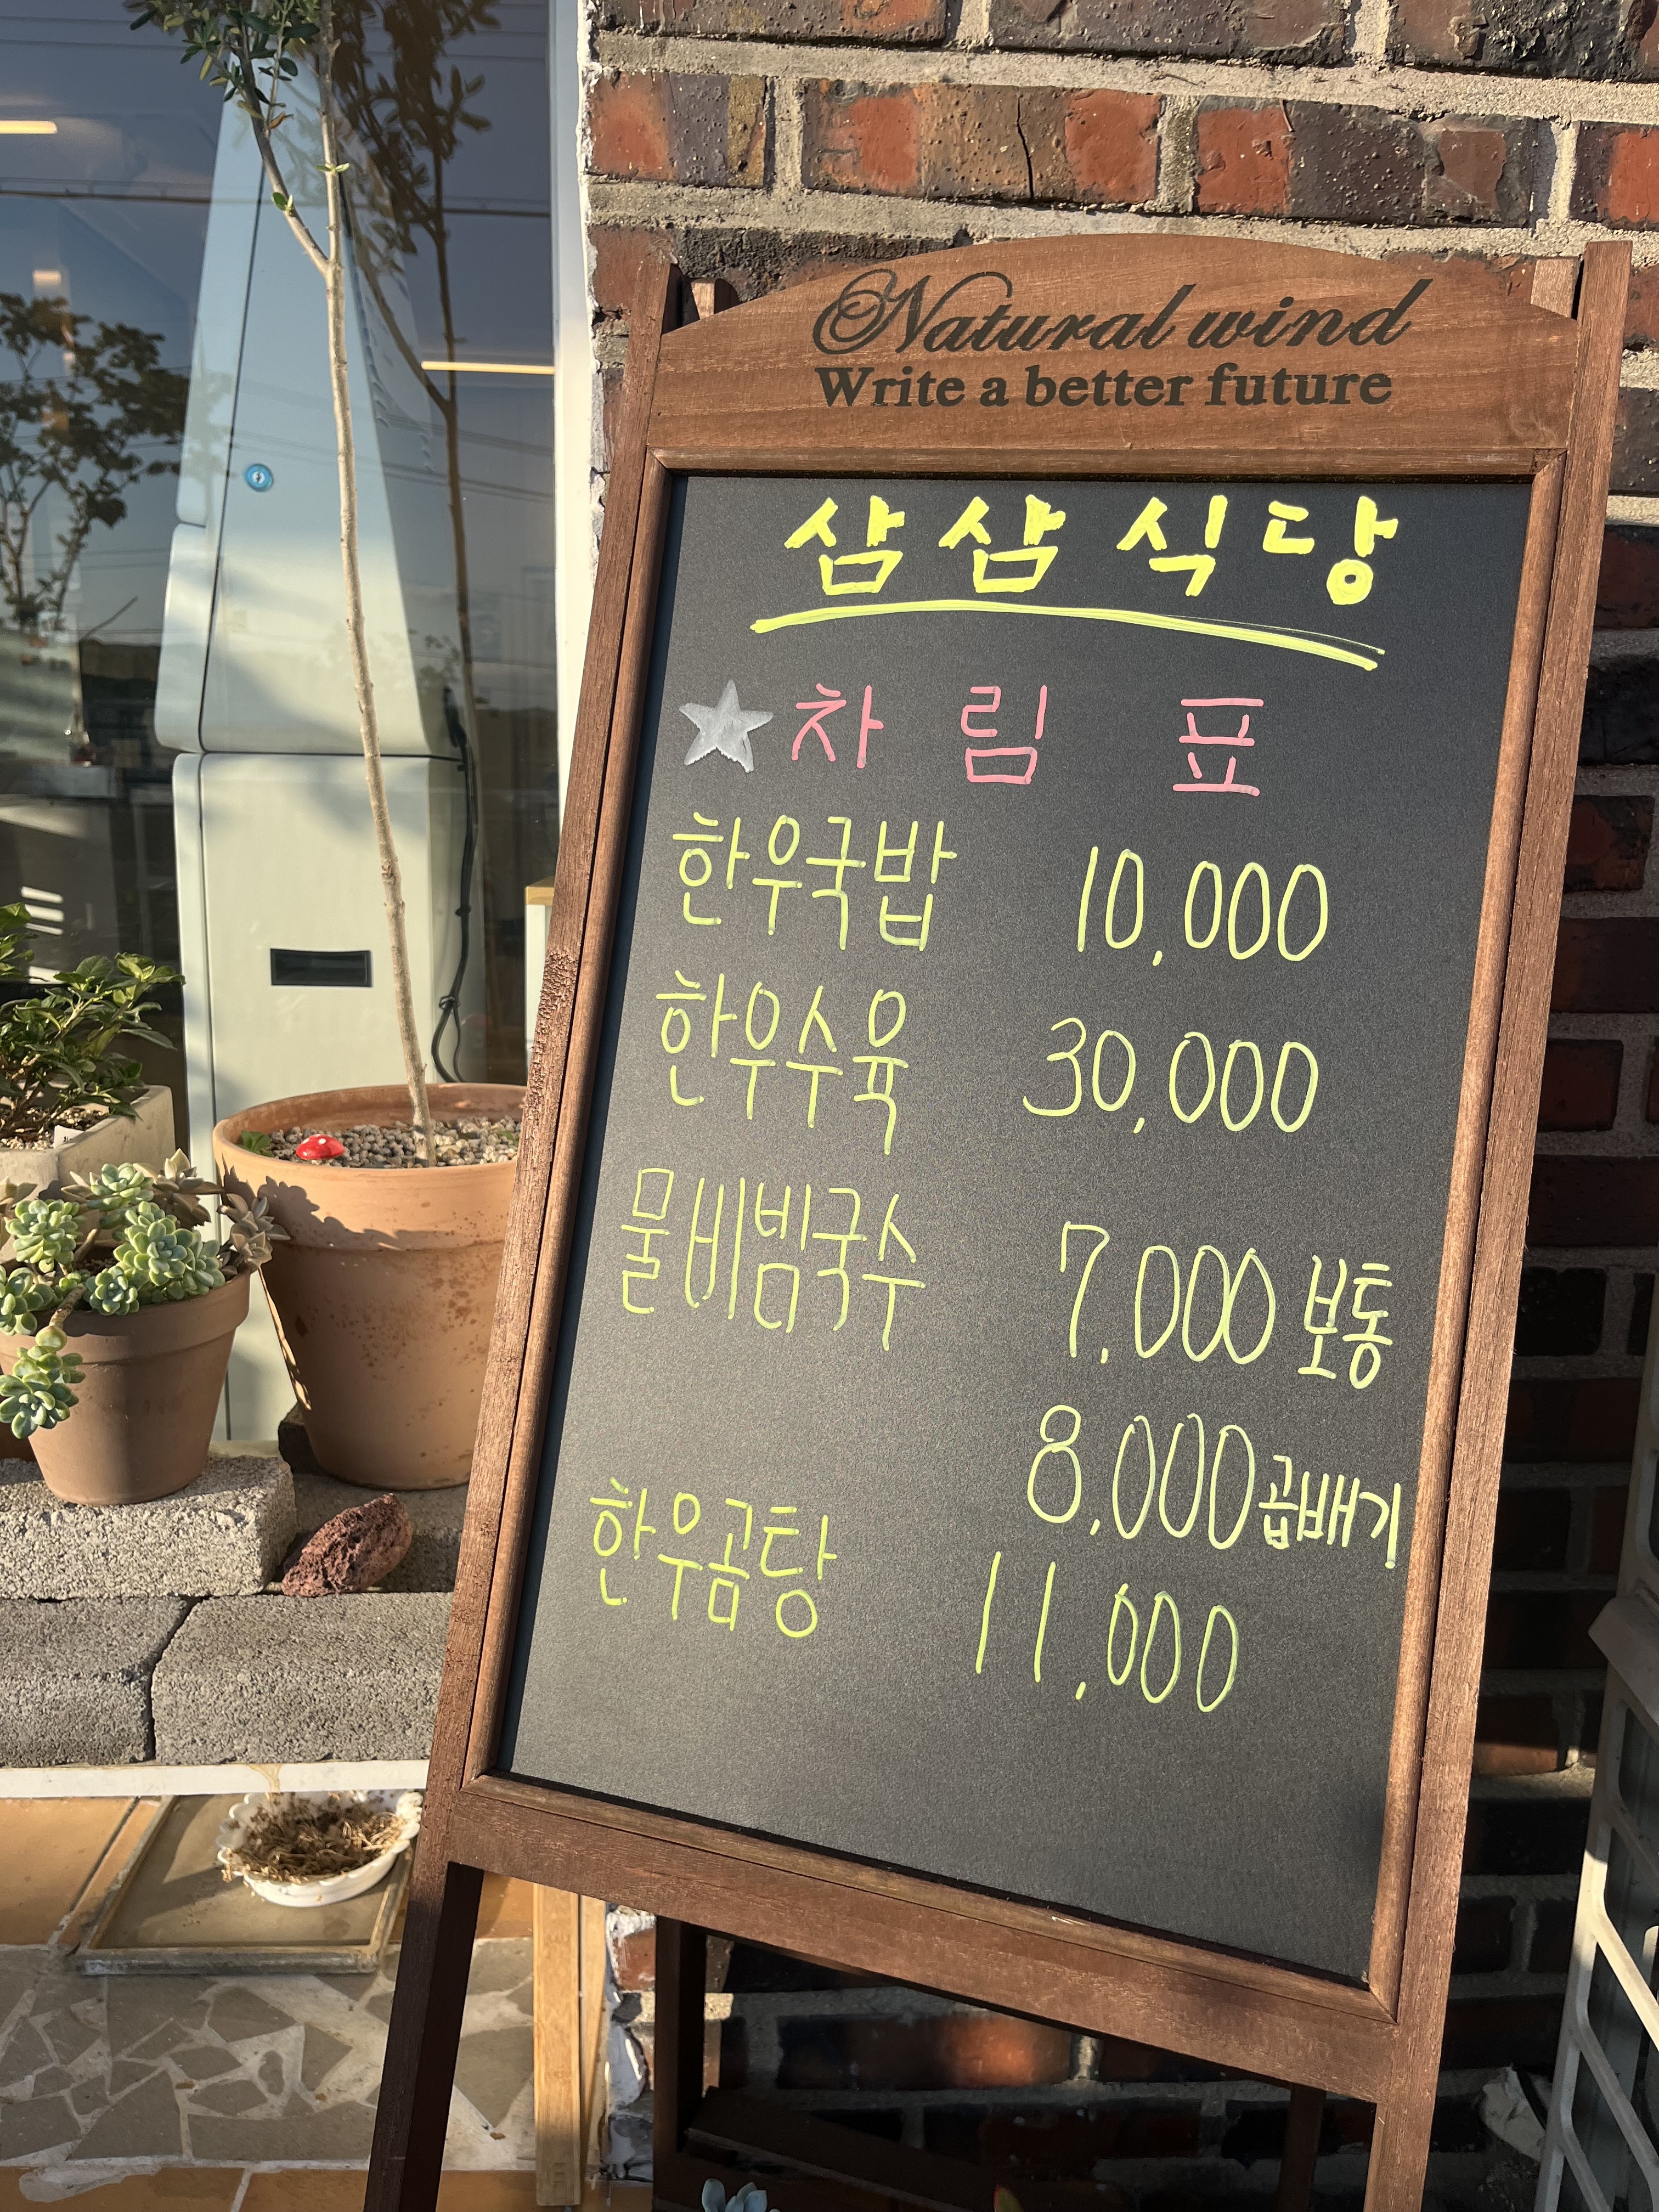 Natural wind
Write a better future
삼삼식당
차림표
한우국밥 10,000
한우수육 30,000
물비빔국수 7,000 보통
8,000 곱배기
한우곰탕 11,000